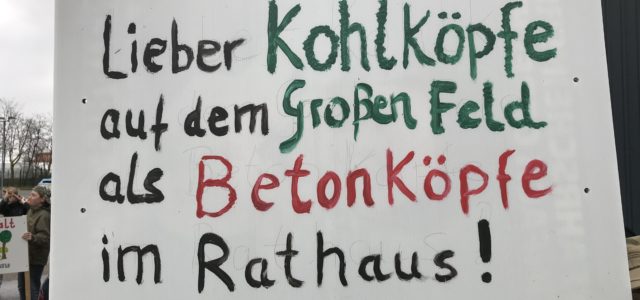 Lieber Kohlköpfe
auf dem Großen Feld
als BetonKöpfe
im Rathaus!
alt